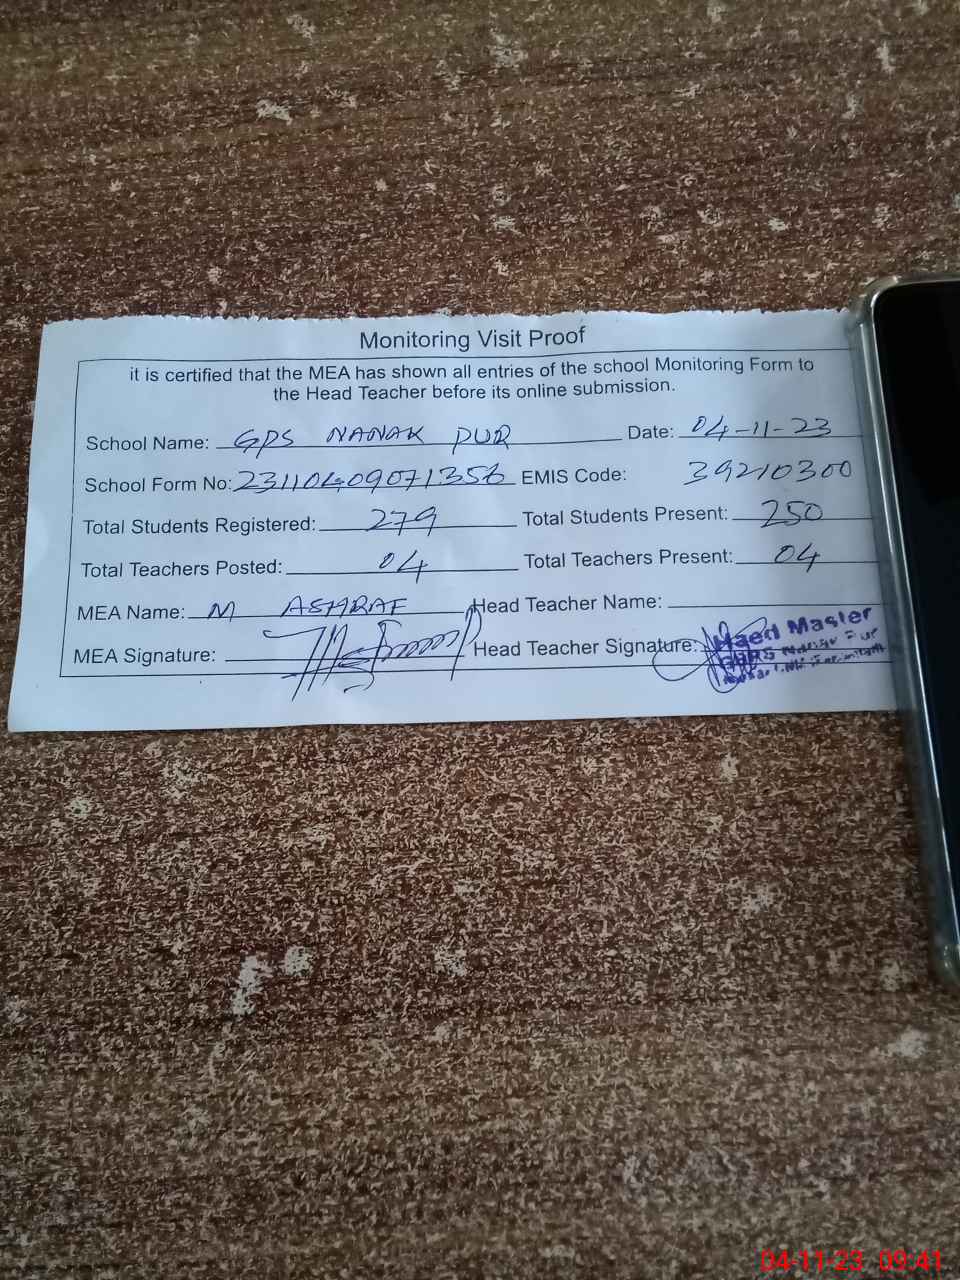 Monitoring Visit Proof
it is certified that the MEA has shown all entries of the school Monitoring Form to
the Head Teacher before its online submission.
School Name: GPS NANAK PUR Date: 04-11-23
School Form No: 23110409071356 EMIS Code: 39210300
Total Students Registered: 279 Total Students Present: 250
Total Teachers Posted: 04 Total Teachers Present: 04
MEA Name: M ASHRAF Head Teacher Name:
MEA Signature: Head Teacher Signature:
Haed Master
04-11-23 09:41